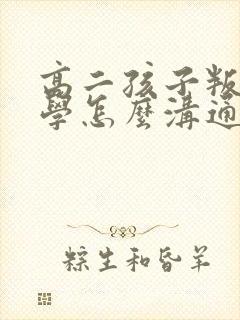 高二孩子叛
學怎麼溝通
粽生和昏羊